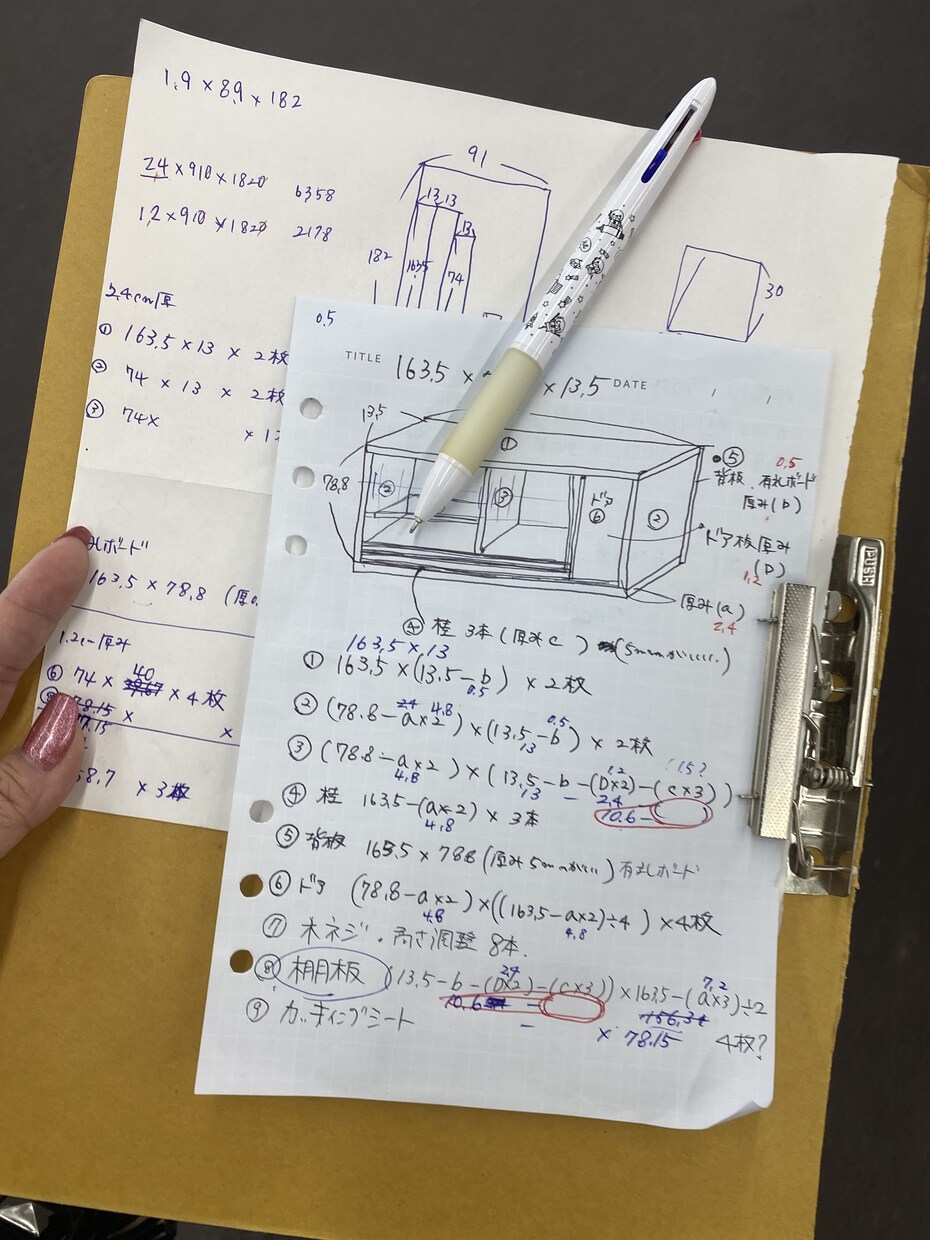 1.9 × 89 × 182
24 × 910 × 1820 6358
12 × 910 × 1820 2178
2.4cm厚
① 163.5 × 13 × 2枚
② 74 × 13 × 2枚
③ 74×
× 1
91
13 13
13
182
163.5
74
30
ボード
163.5 × 78.8 (厚
1.2cm厚み
40
⑥ 74 × × 4枚
⑧ 78.15 ×
77.15 ×
58.7 × 3枚
0.5
TITLE 163.5 × × 13.5 DATE
13.5
78.8
①
②
③
ドア
⑥
②
⑤ 0.5
背板、有孔ボード
厚み(b)
ドア板厚み
(D)
1.2
厚み(a)
2.4
④ 桂 3本 (厚みc) (5mmがいい.)
163.5 × 13
① 163.5 × (13.5 − b) × 2枚
0.5
24 4.8 0.5
② (78.8 − a×2) × (13.5 − b) × 2枚
13
1.2 1.5?
③ (78.8 − a×2) × (13.5 − b − (D×2) − (c×3))
4.8 13 − 2.4
10.6 −
④ 桂 163.5 − (a×2) × 3本
4.8
⑤ 背板 163.5 × 78.8 (厚み5mmがいい) 有孔ボード
⑥ ドア (78.8 − a×2) × ((163.5 − a×2) ÷ 4) × 4枚
4.8 4.8
⑦ 木ネジ・高さ調整 8本.
2.4 7.2
⑧ 棚板 13.5 − b − (D×2) − (c×3)) × 163.5 − (a×3) ÷ 2
10.6 − 156.3
− × 78.15 4枚?
⑨ カッティングシート
PUSH